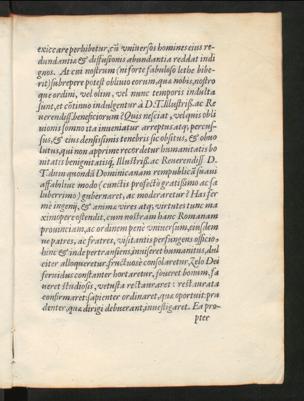 exiccare perhibetur, cũ vniuersos homines eius re-
dundantia & diffusionis abundantia reddat indi
gnos. At cui nostrum (ni forte fabuloso lethe bibe-
rit) subrepere potest obliuio eorum, quæ nobis, nostro
que ordini, vel olim, vel nunc temporis indulta
sunt, et cõtinuo indulgentur à D.T. Illustriß. ac Re
uerendiss. beneficiorum? Quis nesciat, vel quis obli
uionis somno ita inueniatur arreptus atq; percus-
sus, & eius densissimis tenebris sic obsitus, & obuo
lutus, qui non apprime recordetur humanitatis bo
nitatis benignitatisq; Illustriß. ac Reuerendiss. D.
T. dum quondã Dominicanam rempublicã suaui
affabiliue modo (cunctis profecto gratissimo ac sa
luberrimo) gubernaret, ac moderaretur? Has fer
mè ingenij, & animi vires atq; virtutes tunc ma
ximopere ostendit, cum nostram hanc Romanam
prouinciam, ac ordinem penè vniuersum, eiusdem
ne patres, ac fratres, visitantis perfungens officio,
hinc & inde pertransiens, inuiseret humanitus, dul
citer alloqueretur, fructuosè consolaretur, Zelo Dei
feruidus constanter hortaretur, foueret bonum, fa
ueret studiosis, vetusta restauraret: restaurata
confirmaret: sapienter ordinaret, quæ oportuit: pru
denter, quæ dirigi debuerant, inuestigaret. Ea pro-
pter